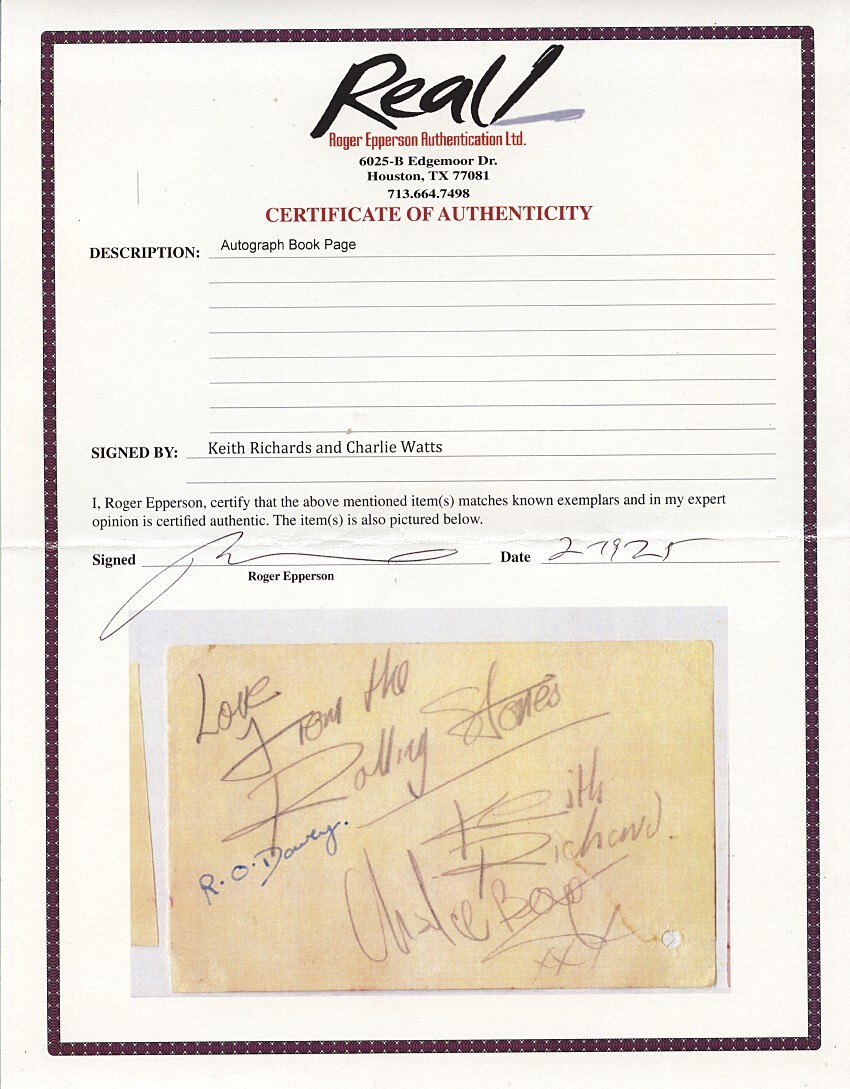 Real!
Roger Epperson Authentication Ltd.
6025-B Edgemoor Dr.
Houston, TX 77081
713.664.7498
CERTIFICATE OF AUTHENTICITY
DESCRIPTION: Autograph Book Page
SIGNED BY: Keith Richards and Charlie Watts
I, Roger Epperson, certify that the above mentioned item(s) matches known exemplars and in my expert
opinion is certified authentic. The item(s) is also pictured below.
Signed Date 2-19-25
Roger Epperson
Love
From the
Rolling Stones
Keith
Richard.
R.O.Davey.
Charlie Boy
xxx